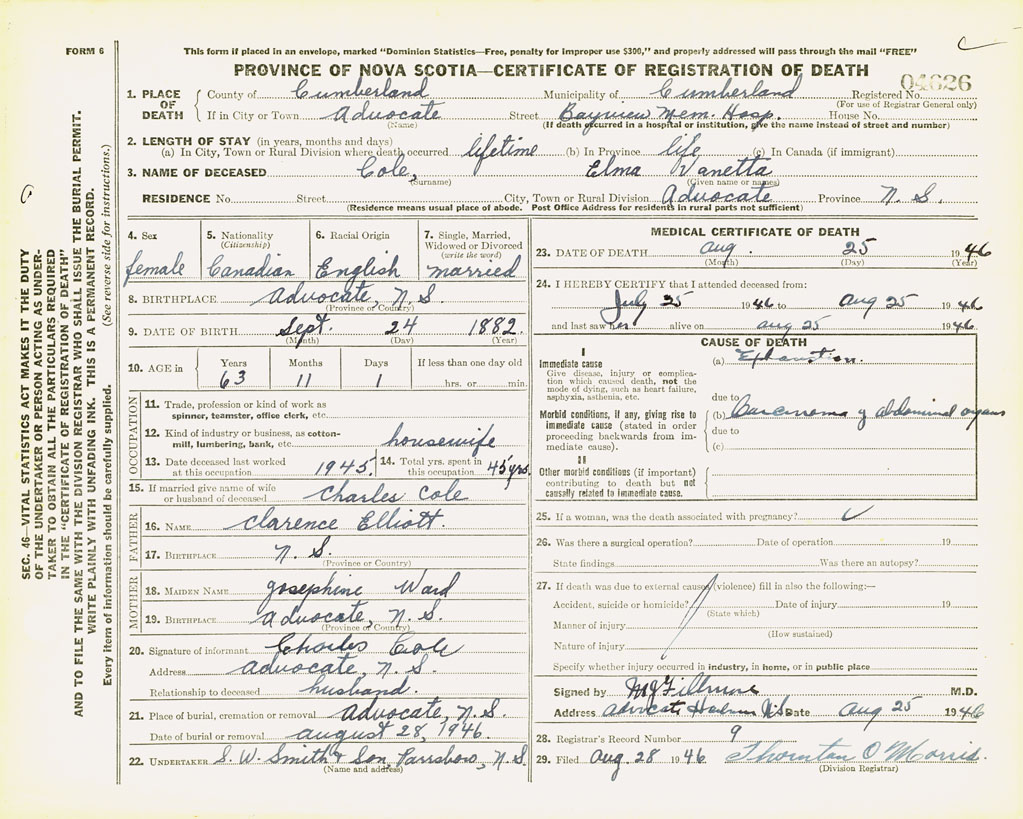 FORM 6
This form if placed in an envelope, marked "Dominion Statistics—Free, penalty for improper use $300," and properly addressed will pass through the mail "FREE"
PROVINCE OF NOVA SCOTIA—CERTIFICATE OF REGISTRATION OF DEATH
04626
1. PLACE OF DEATH
County of Cumberland Municipality of Cumberland Registered No.
(For use of Registrar General only)
If in City or Town Advocate Street Bayview Mem. Hosp. House No.
(Name) (If death occurred in a hospital or institution, give the name instead of street and number)
2. LENGTH OF STAY (in years, months and days)
(a) In City, Town or Rural Division where death occurred lifetime (b) In Province life (c) In Canada (if immigrant)
3. NAME OF DECEASED Cole, Elma Vanetta
(Surname) (Given name or names)
RESIDENCE No. Street City, Town or Rural Division Advocate Province N. S.
(Residence means usual place of abode. Post Office Address for residents in rural parts not sufficient)
4. Sex
female
5. Nationality
(Citizenship)
Canadian
6. Racial Origin
English
7. Single, Married, Widowed or Divorced
(write the word)
married
8. BIRTHPLACE Advocate, N. S.
(Province or Country)
9. DATE OF BIRTH Sept. 24 1882.
(Month) (Day) (Year)
10. AGE in
Years Months Days If less than one day old
63 11 1 hrs. or min.
OCCUPATION
11. Trade, profession or kind of work as
spinner, teamster, office clerk, etc.
12. Kind of industry or business, as cotton-
mill, lumbering, bank, etc. housewife
13. Date deceased last worked
at this occupation 1945.
14. Total yrs. spent in
this occupation 45 yrs.
15. If married give name of wife
or husband of deceased Charles Cole
FATHER
16. NAME Clarence Elliott.
17. BIRTHPLACE N. S.
(Province or Country)
MOTHER
18. MAIDEN NAME Josephine Ward
19. BIRTHPLACE Advocate, N. S.
(Province or Country)
20. Signature of informant Charles Cole
Address Advocate, N. S.
Relationship to deceased husband.
21. Place of burial, cremation or removal Advocate, N. S.
Date of burial or removal August 28, 1946.
22. UNDERTAKER S. W. Smith & Son, Parrsboro, N. S.
(Name and address)
MEDICAL CERTIFICATE OF DEATH
23. DATE OF DEATH Aug. 25 1946
(Month) (Day) (Year)
24. I HEREBY CERTIFY that I attended deceased from:
July 25 1946 to Aug 25 1946
and last saw her alive on Aug 25 1946.
CAUSE OF DEATH
I
Immediate cause
Give disease, injury or complica-
tion which caused death, not the
mode of dying, such as heart failure,
asphyxia, asthenia, etc.
(a) Exhaustion.
due to
Morbid conditions, if any, giving rise to
immediate cause (stated in order
proceeding backwards from im-
mediate cause).
(b) Carcinoma of abdominal organs
due to
(c)
II
Other morbid conditions (if important)
contributing to death but not
causally related to immediate cause.
25. If a woman, was the death associated with pregnancy?
26. Was there a surgical operation? Date of operation 19
State findings Was there an autopsy?
27. If death was due to external causes (violence) fill in also the following:—
Accident, suicide or homicide? Date of injury 19
(State which)
Manner of injury
(How sustained)
Nature of injury
Specify whether injury occurred in industry, in home, or in public place
Signed by M J Fillmore M.D.
Address Advocate Harbour N.S. Date Aug 25 1946
28. Registrar's Record Number 9
29. Filed Aug 28 1946 Thornton O Morris.
(Division Registrar)
SEC. 46—VITAL STATISTICS ACT MAKES IT THE DUTY
OF THE UNDERTAKER OR PERSON ACTING AS UNDER-
TAKER TO OBTAIN ALL THE PARTICULARS REQUIRED
IN THE "CERTIFICATE OF REGISTRATION OF DEATH"
AND TO FILE THE SAME WITH THE DIVISION REGISTRAR WHO SHALL ISSUE THE BURIAL PERMIT.
WRITE PLAINLY WITH UNFADING INK. THIS IS A PERMANENT RECORD.
Every item of information should be carefully supplied. (See reverse side for instructions.)